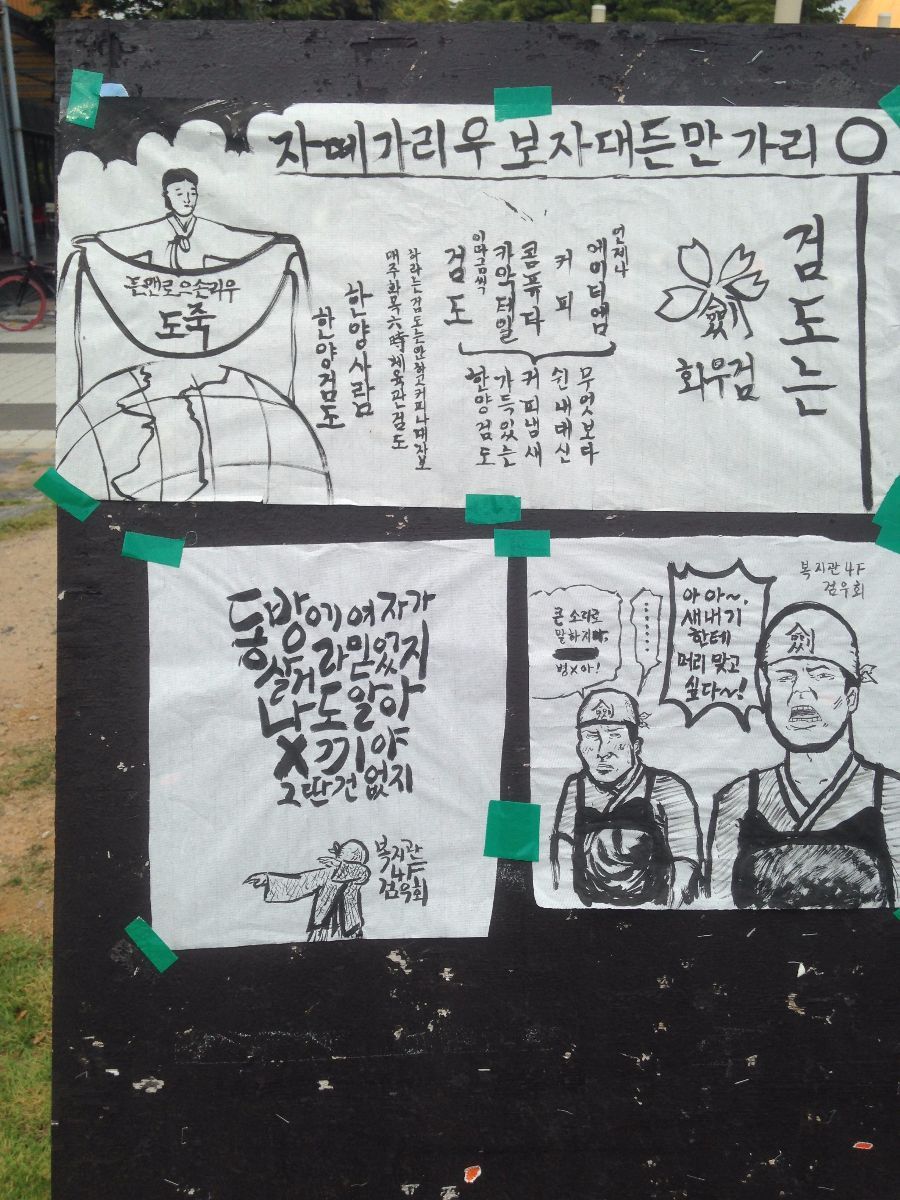 자떼가리우 보자대든만 가리 〇
검도는
회우검
언제나
에이티엠
커피
콤퓨타
카악테일
이따금씩
검도
무엇보다
쉰내대신
커피냄새
가득있는
한양검도
하라는검도는안하고커피나대자보
매주화목六時체육관검도
한양사람
한양검도
든맨로으손리우
도죽
동방에여자가
살거라믿었지
나도알아
X끼야
그딴건없지
복지관
4F
검우회
큰 소리로
말하지마,
병X아!
......
아아~,
새내기
한테
머리 맞고
싶다~!
복지관 4F
검우회